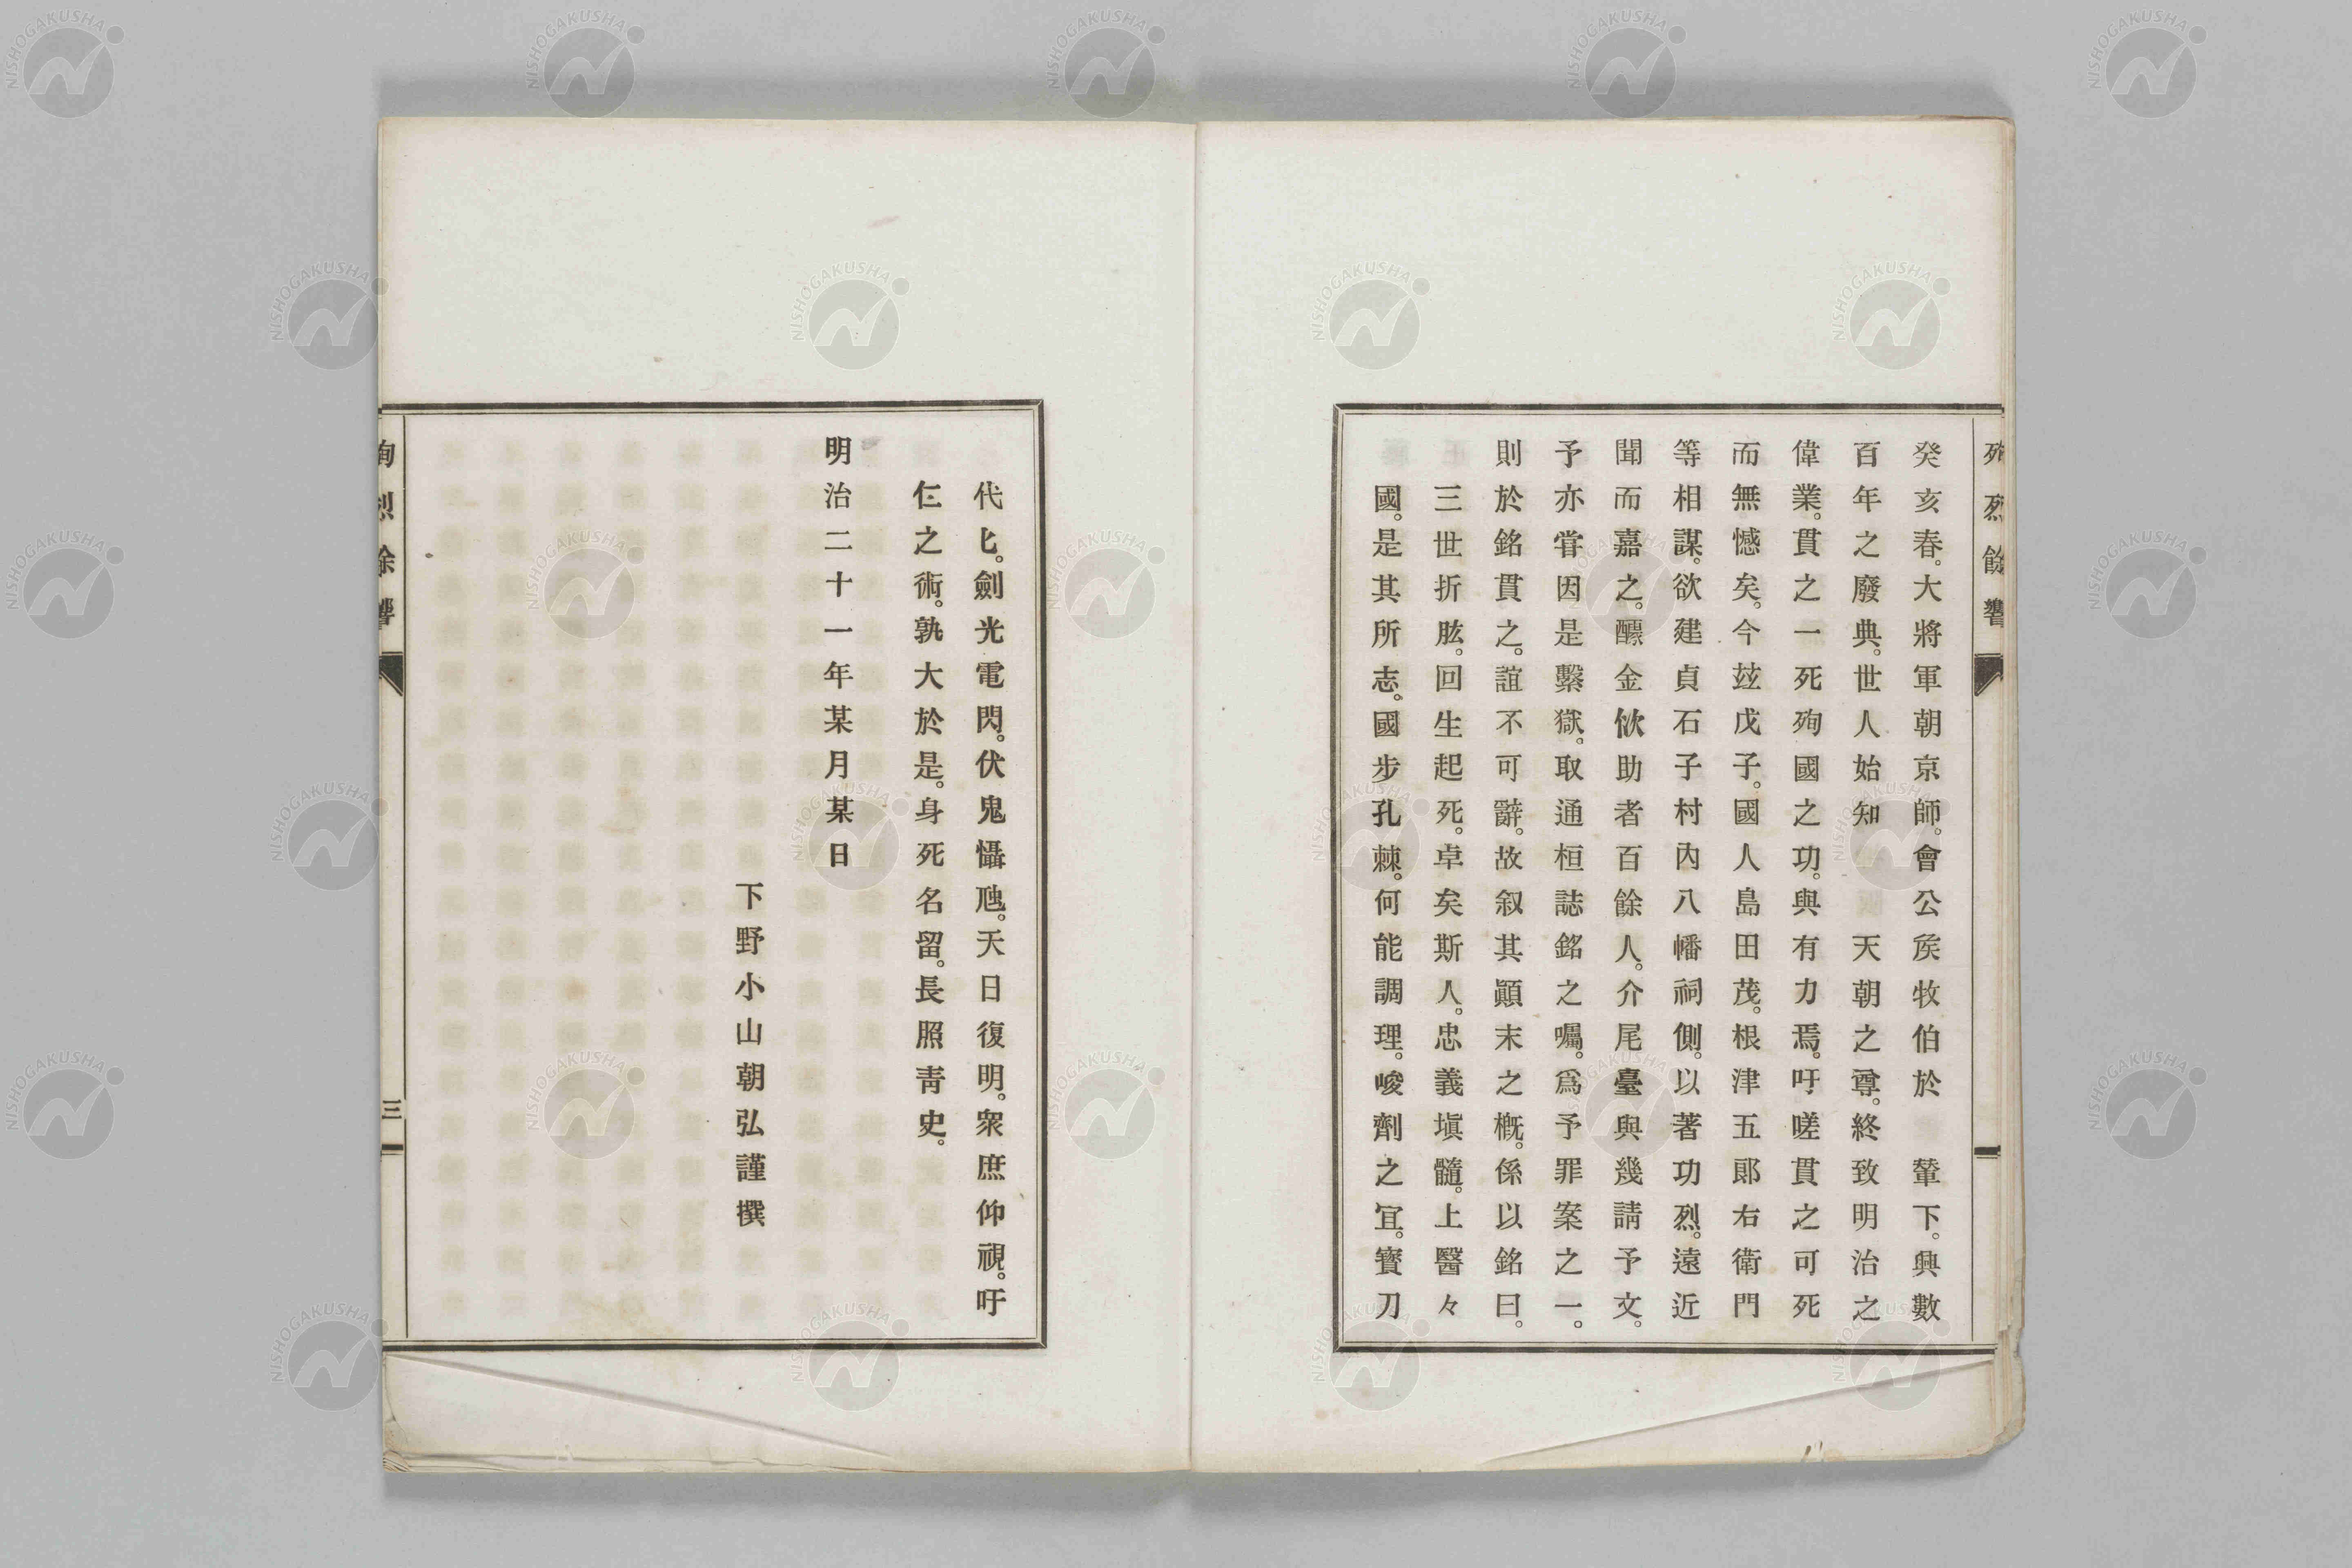 殉烈餘響
癸亥春。大將軍朝京師。會公矦牧伯於　輦下。興數
百年之廢典。世人始知　　天朝之尊。終致明治之
偉業。貫之一死殉國之功。與有力焉。吁嗟貫之可死
而無憾矣。今玆戊子。國人島田茂。根津五郎右衛門
等相謀。欲建貞石子村內八幡祠側。以著功烈。遠近
聞而嘉之。醵金佽助者百餘人。介尾臺與幾請予文。
予亦甞因是繫獄。取通桓誌銘之囑。爲予罪案之一。
則於銘貫之。誼不可辭。故叙其顚末之槪。係以銘曰。
三世折肱。回生起死。卓矣斯人。忠義塡髓。上醫々
國。是其所志。國步孔棘。何能調理。峻劑之宜。寳刀
代匕。劍光電閃。伏鬼懾虺。天日復明。衆庶仰視。吁
仁之術。孰大於是。身死名留。長照靑史。
明治二十一年某月某日
下野小山朝弘謹撰
殉烈餘響
三
NISHOGAKUSHA